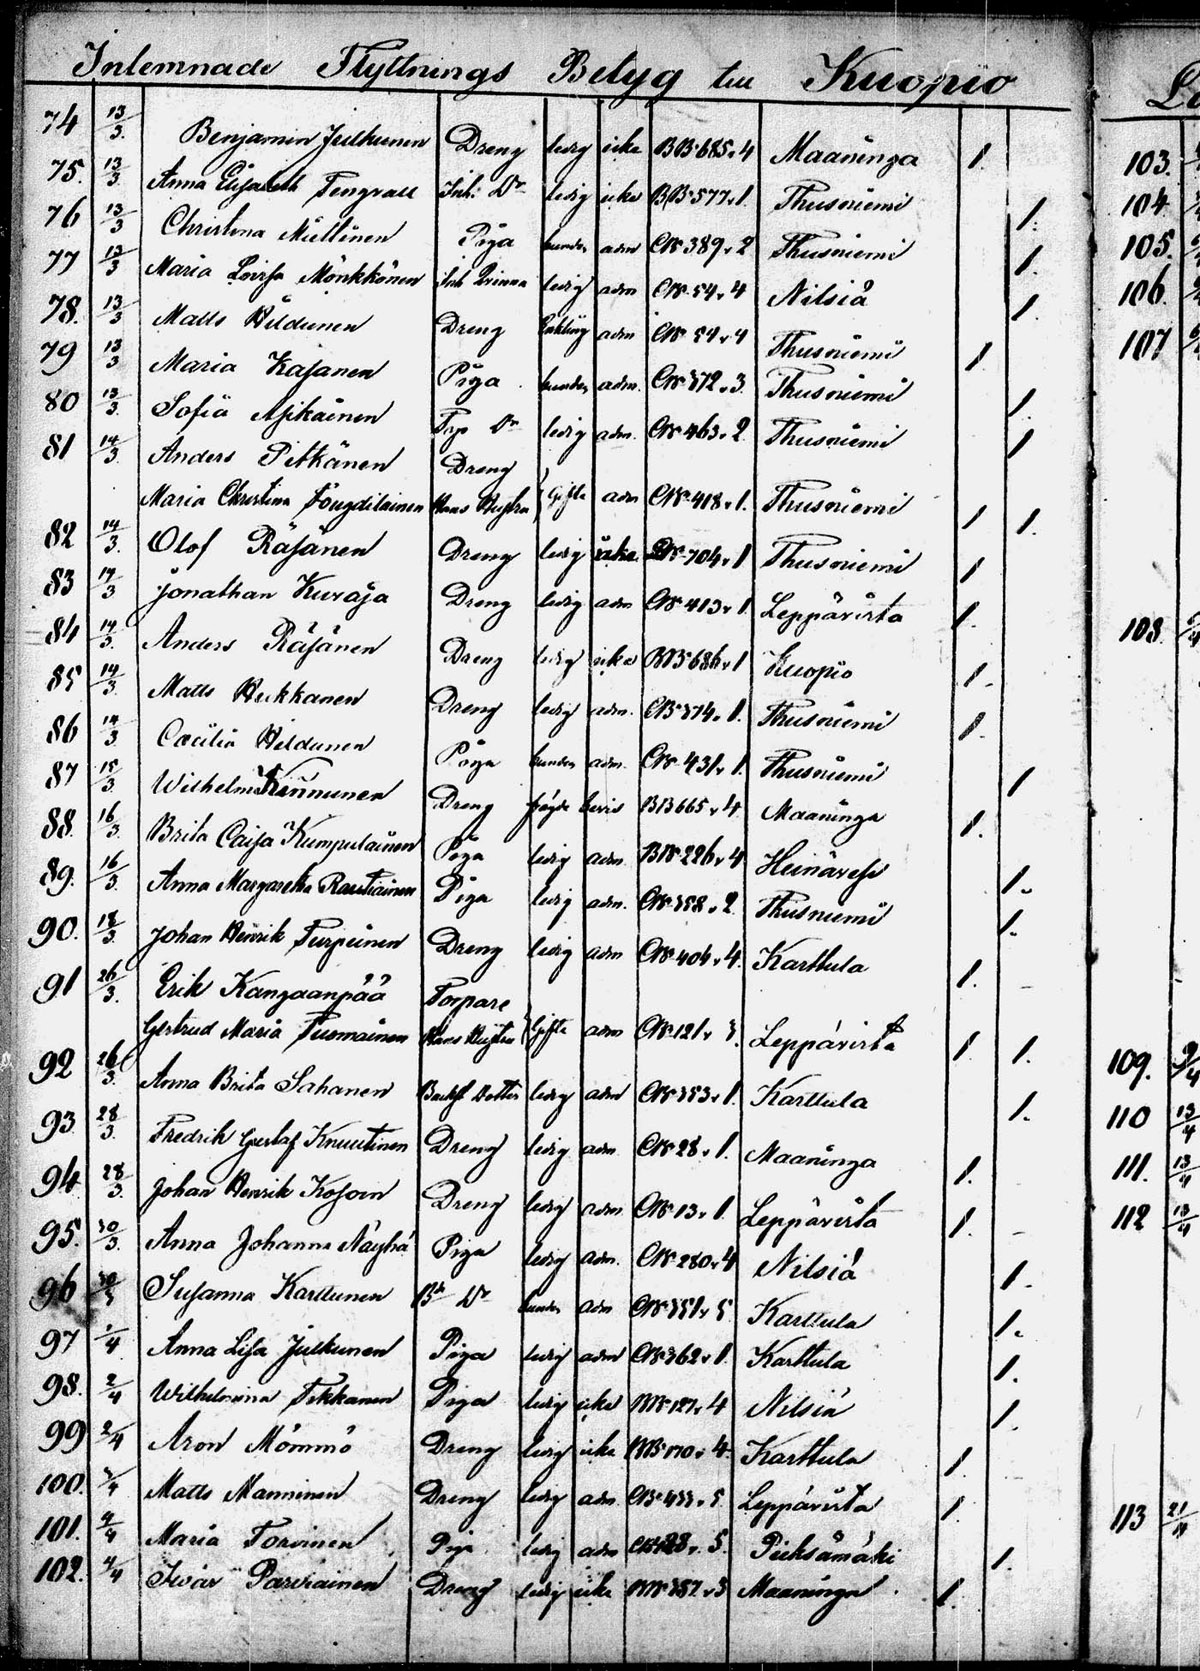 Inlemnade Flyttnings Betyg till Kuopio
74 13/3. Benjamin Julkunen Dreng ledig icke BB 685 v 4 Maaninga 1.
75. 13/3 Anna Elisabeth Tengvall Inh: Dr ledig icke BB 577 v 1. Thusniemi 1.
76 13/3 Christina Miettinen Piga adm CN 389 v 2 Thusniemi 1.
77 13/3 Maria Lovisa Mönkkönen Inh ledig adm CN 54 v 4 Nilsiä 1.
78. 13/3 Matts Hildunen Dreng Enkling adm CN 54 v 4 Thusniemi 1.
79 13/3 Maria Kajanen Piga adm. CN 372 v 3. Thusniemi 1.
80 13/3. Sofia Asikainen Torp Dr ledig adm. CN 463 v 2 Thusniemi 1
81 14/3. Anders Pitkänen Dreng
Maria Christina Hans Hustru Gifta adm CN 418 v 1. Thusniemi 1 1.
82 14/3. Olof Räsänen Dreng ledig icke 704 v 1 Thusniemi 1
83 17/3 Jonathan Kuvaja Dreng ledig adm CN 413 v 1. Leppävirta 1.
84 14/3. Anders Räsänen Dreng ledig icke BB 686 v 1 Kuopio 1.
85 14/3 Matts Hukkanen Dreng ledig adm. CB 374 v 1. Thusniemi 1.
86 14/3 Cæcilia Hildunen Piga adm. CN 431 v 1. Thusniemi 1
87 15/3 Wilhelm Kinnunen Dreng frejde bevis BB 665 v 4 Maaninga 1.
88. 16/3. Brita Caisa Kumpulainen Piga ledig adm. BN 226 v 4 Heinävesi 1.
89. 16/3. Anna Margaretha Rautiainen Piga ledig adm. CN 358 v 2 Thusniemi 1.
90. 18/3. Johan Henrik Turpeinen Dreng ledig adm CN 404 v 4. Karttula 1.
91 26/3. Erik Kangaanpää Torpare
Gertrud Maria Tuomainen Hans Hustru Gifta adm CN 121 v 3. Leppävirta 1 1.
92 26/3. Anna Brita Sahanen Dotter ledig adm CN 353 v 1. Karttula 1.
93. 28/3. Fredrik Gustaf Knuutinen Dreng ledig adm. CN 28 v 1. Maaninga 1.
94. 28/3 Johan Henrik Kosoin Dreng ledig adm CN 13 v 1. Leppävirta 1.
95. 30/3. Anna Johanna Näyhä Piga ledig adm. CN 280 v 4 Nilsiä 1.
96 30/3 Susanna Karttunen Bde Dr adm CN 351 v 5 Karttula 1.
97 1/4 Anna Lisa Julkunen Piga ledig adm CN 362 v 1. Karttula 1.
98. 2/4 Wilhelmina Tikkanen Piga ledig icke BN 127 v 4 Nilsiä 1.
99 2/4 Aron Mömmö Dreng ledig icke BB 170 v 4 Karttula 1.
100. /4 Matts Manninen Dreng ledig adm. CB 433 v 5 Leppävirta 1.
101. 4/4 Maria Torvinen Piga ledig adm 28 v 5. Pieksämäki 1.
102. 4/4 Ivar Parviainen Dreng ledig icke BN 357 v 3 Maaninga 1.
103.
104
105.
106.
107
108.
109. 9/4
110 13/4
111. 13/4
112 13/4
113 21/4